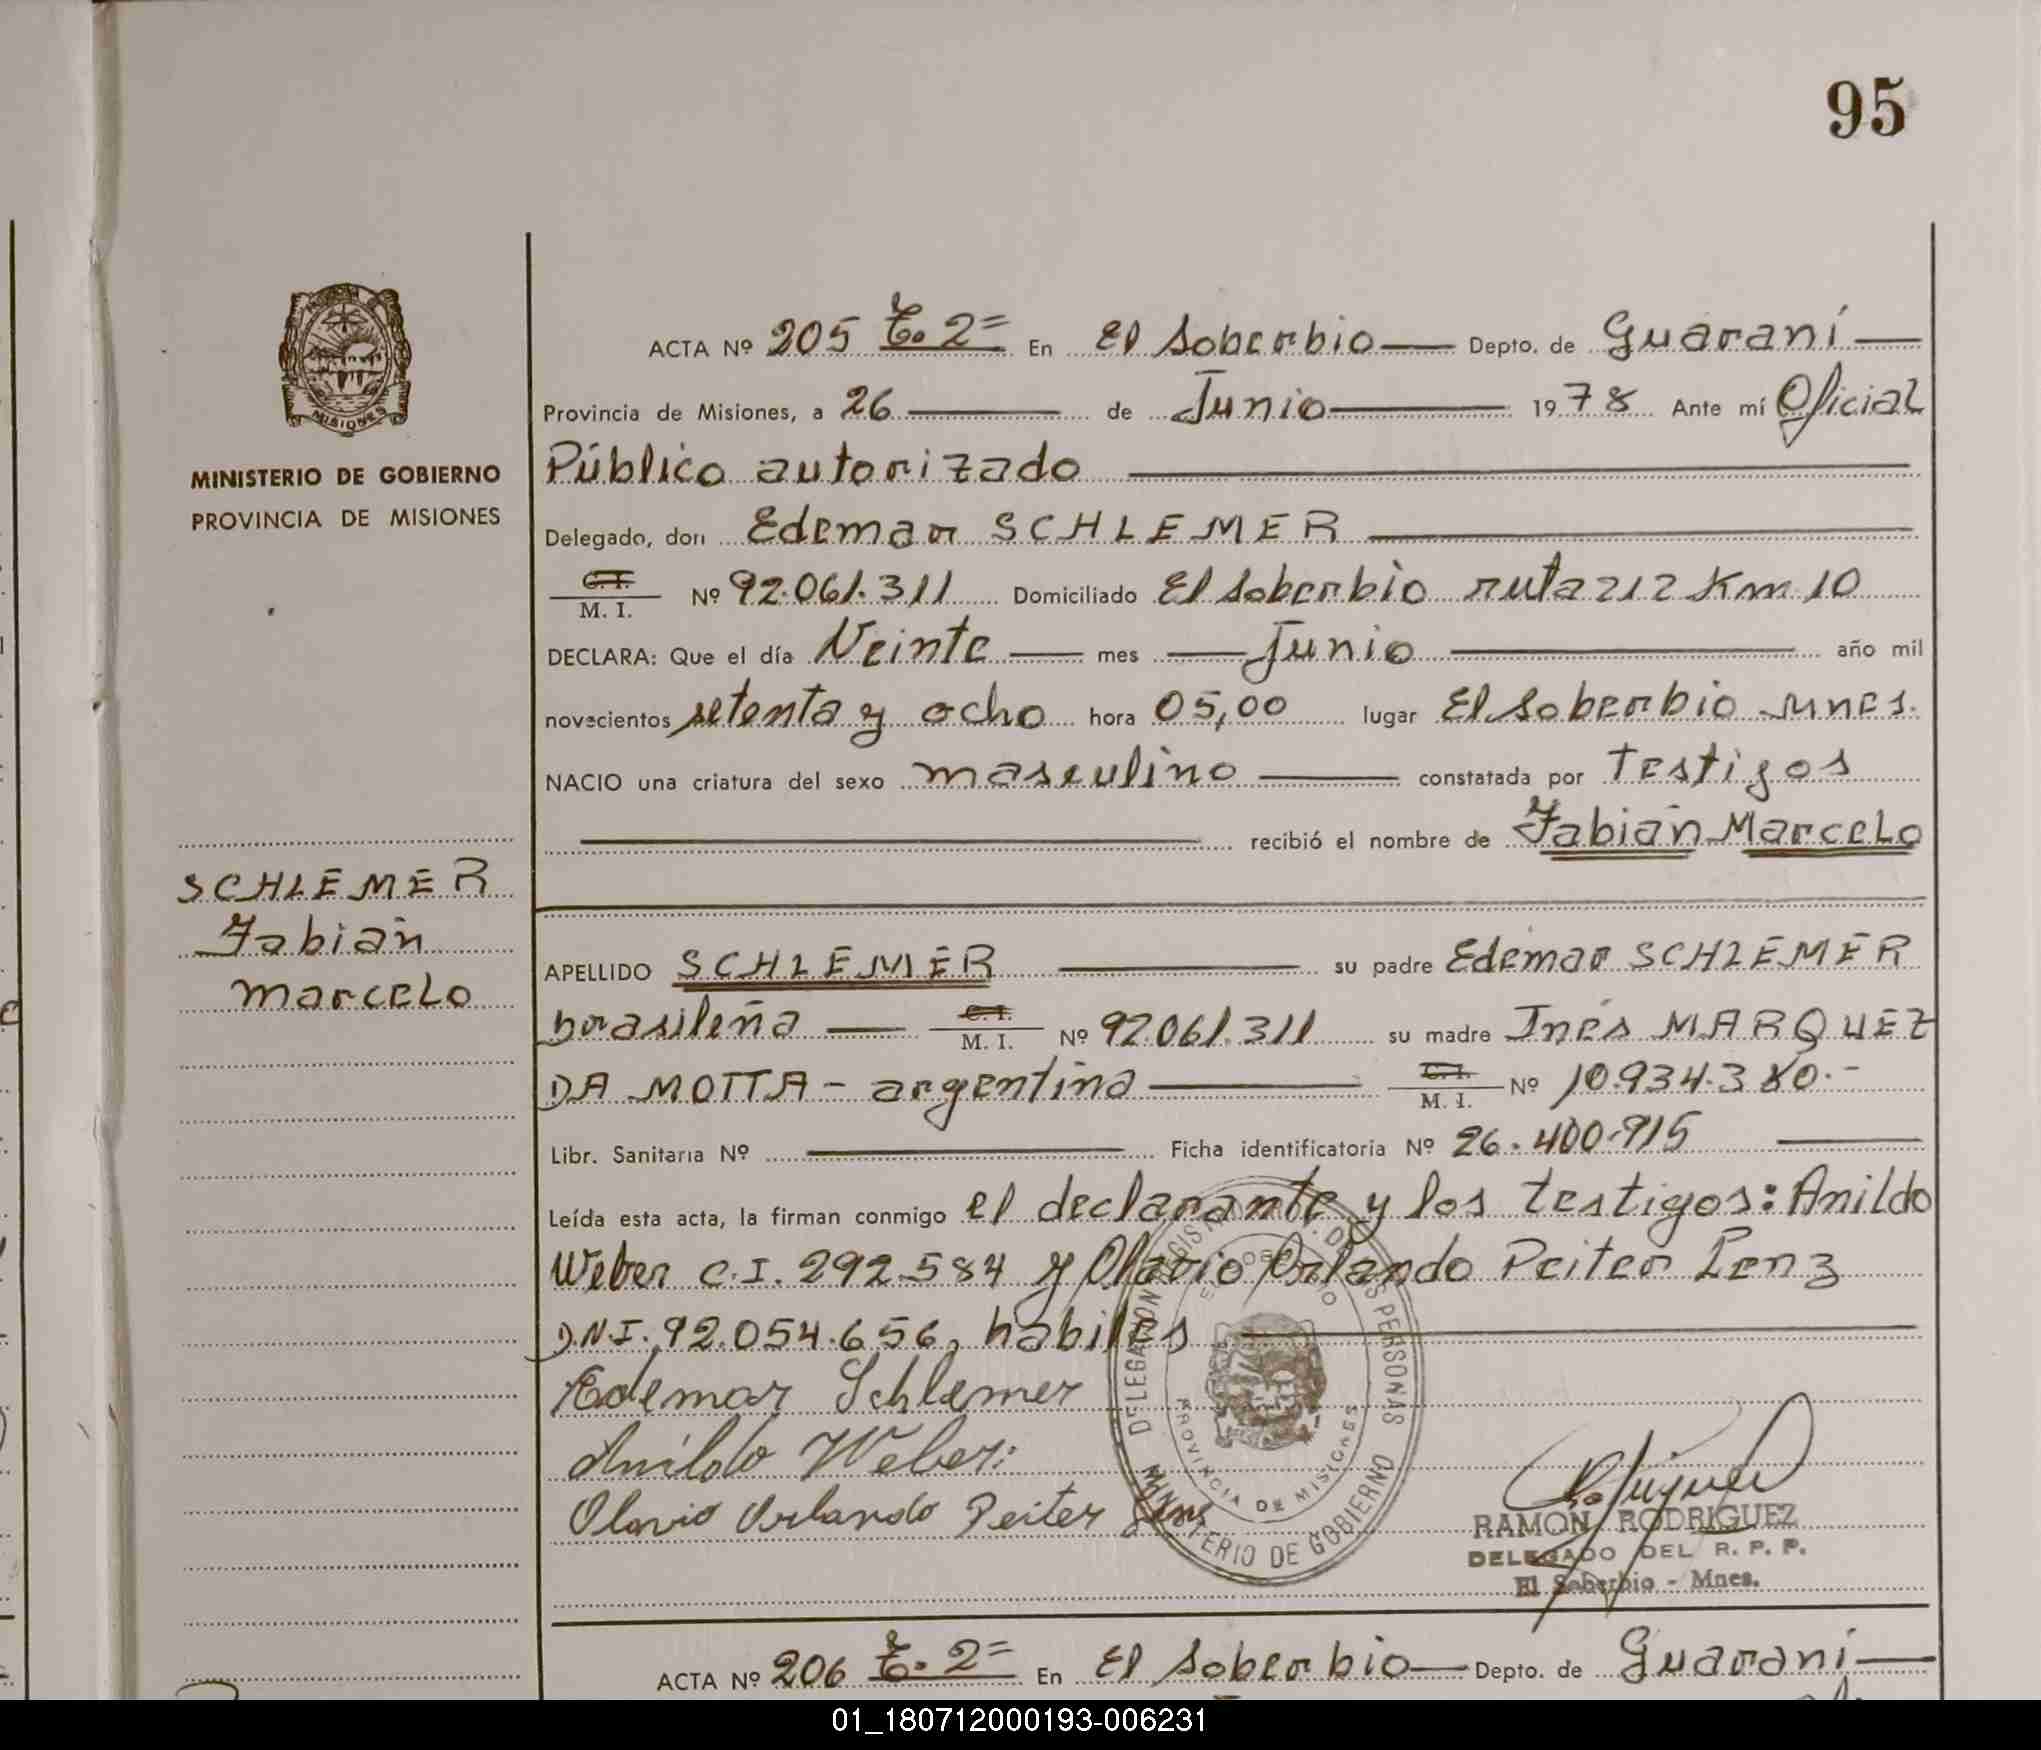 95
MINISTERIO DE GOBIERNO
PROVINCIA DE MISIONES
SCHLEMER
Fabián
Marcelo
ACTA Nº 205 T.º 2= En El Soberbio Depto. de Guaraní
Provincia de Misiones, a 26 de Junio 1978 Ante mí Oficial
Público autorizado
Delegado, don Edemar SCHLEMER
C. I. M. I. Nº 92.061.311 Domiciliado El Soberbio ruta 212 Km 10
DECLARA: Que el día Veinte mes Junio año mil
novecientos setenta y ocho hora 05,00 lugar El Soberbio Mnes.
NACIO una criatura del sexo masculino constatada por Testigos
recibió el nombre de Fabián Marcelo
APELLIDO SCHLEMER su padre Edemar SCHLEMER
brasileña C. I. M. I. Nº 92.061.311 su madre Inés MARQUEZ
DA MOTTA - argentina C. I. M. I. Nº 10.934.380.-
Libr. Sanitaria Nº Ficha identificatoria Nº 26.400.915
Leída esta acta, la firman conmigo el declarante y los testigos: Anildo
Weber C.I. 292.584 y Olavio Orlando Peiter Lenz
D.N.I. 92.054.656, hábiles
Edemar Schlemer
Anildo Weber
Olavio Orlando Peiter Lenz
PROVINCIA DE MISIONES
MINISTERIO DE GOBIERNO
RAMON RODRIGUEZ
DELEGADO DEL R. P. P.
El Soberbio - Mnes.
ACTA Nº 206 T.º 2= En El Soberbio Depto. de Guaraní
01_180712000193-006231